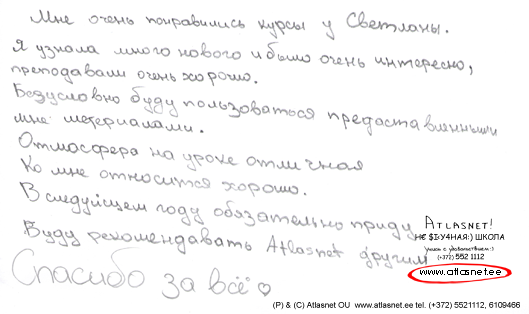 Мне очень понравились курсы у Светланы.
Я узнала много нового и было очень интересно,
преподавали очень хорошо.
Безусловно буду пользоваться предоставленныши
мне метериалами.
Отмосфера на уроке отличная
Ко мне относится хорошо.
В следуйщем году обязательно приду
Буду рекомендавать Atlasnet другим
Спасибо за всё ♡
ATLASNET!
НЕ $КУЧНАЯ:) ШКОЛА
учимся с удовольствием:)
(+372) 552 1112
www.atlasnet.ee
(P) & (C) Atlasnet OU www.atlasnet.ee tel. (+372) 5521112, 6109466